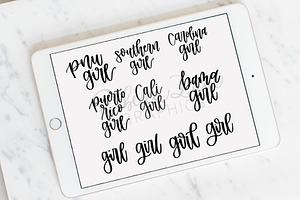 southern
girl
Carolina
girl
girl
Puerto
rico
girl
Cali
girl
bama
girl
girl girl girl girl